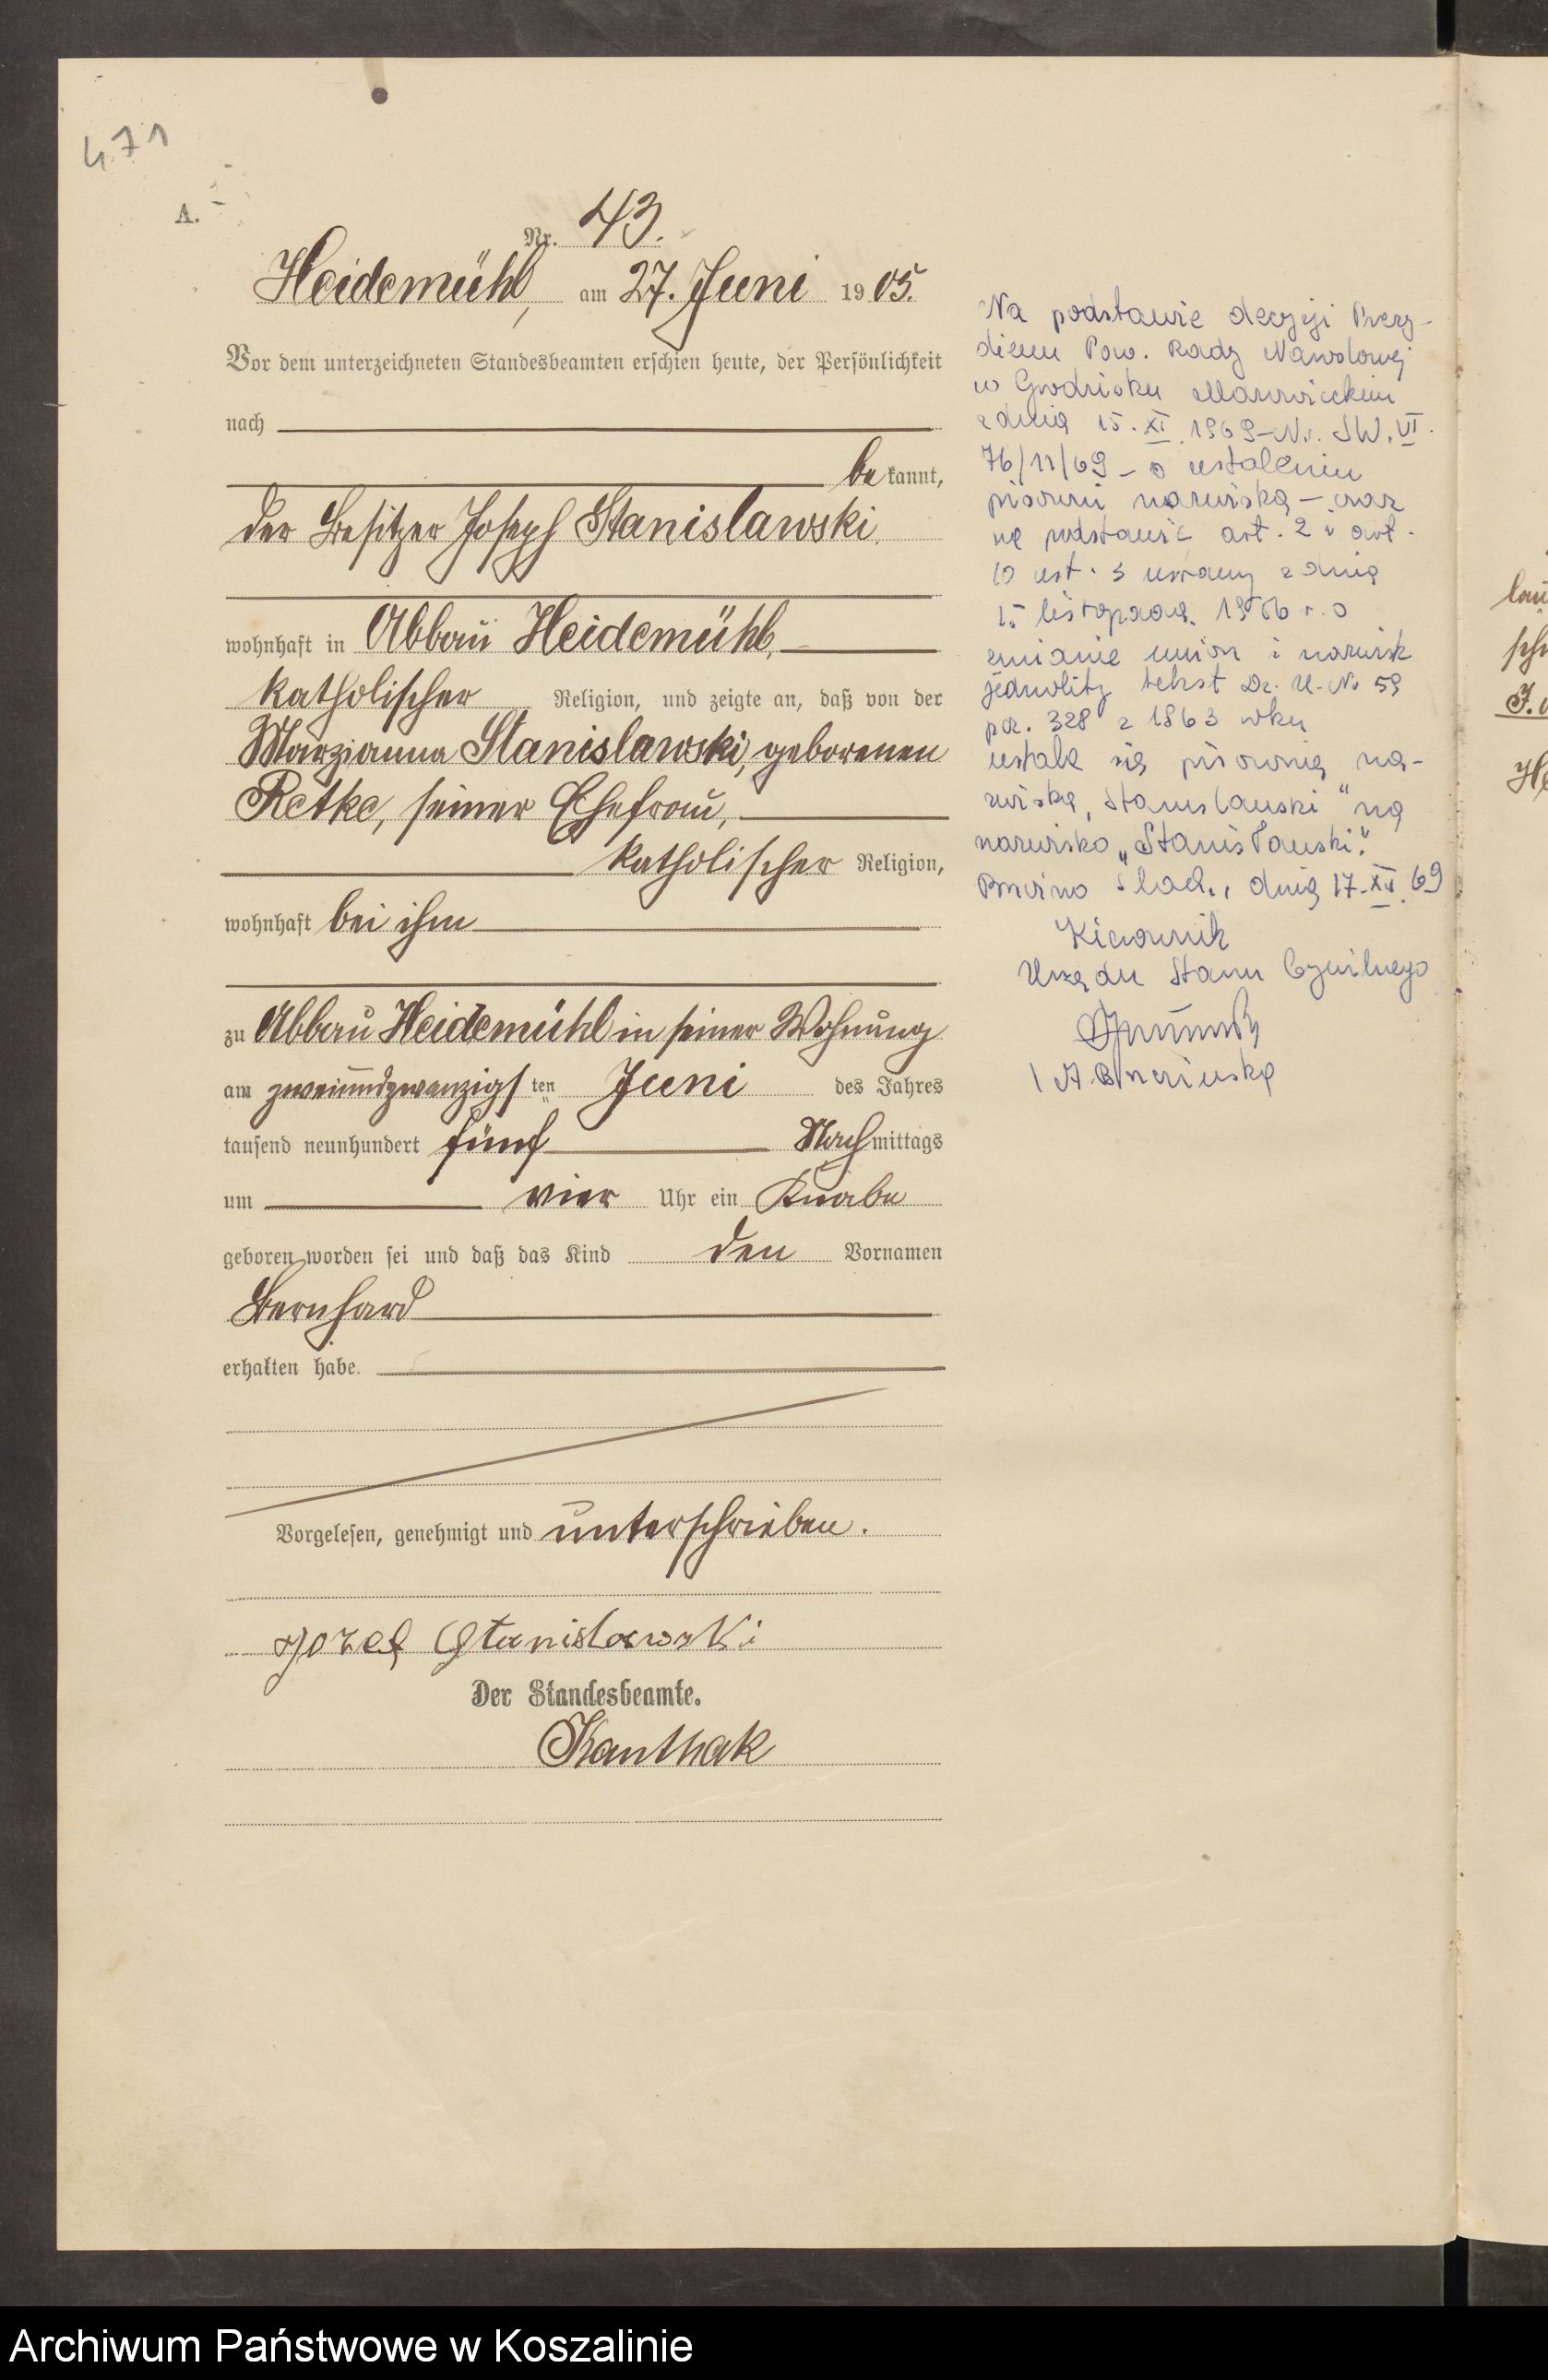 471
A.
Nr. 43.
Heidemühl, am 27. Juni 1905.
Vor dem unterzeichneten Standesbeamten erschien heute, der Persönlichkeit
nach
be kannt,
der Besitzer Joseph Stanislawski,
wohnhaft in Abbau Heidemühl,
katholischer Religion, und zeigte an, daß von der
Marzianna Stanislawski, geborenen
Retke, seiner Ehefrau,
katholischer Religion,
wohnhaft bei ihm
zu Abbau Heidemühl in seiner Wohnung
am zweiundzwanzigs ten Juni des Jahres
tausend neunhundert fünf Nach mittags
um vier Uhr ein Knabe
geboren worden sei und daß das Kind den Vornamen
Bernhard
erhalten habe.
Vorgelesen, genehmigt und unterschrieben.
Jozef Stanislawski
Der Standesbeamte.
Kanthak
Na podstawie decyzji Prezy-
dium Pow. Rady Narodowej
w Grodzisku Mazowieckim
z dnia 15. XI. 1969 - Nr. SW. VI.
76/11/69 - o ustaleniu
pisowni nazwiska - oraz
na podstawie art. 2 i art.
10 ust. 3 ustawy z dnia
15 listopada 1956 r. o
zmianie imion i nazwisk
jednolity tekst Dz. U. Nr 59
poz. 328 z 1963 roku
ustala się pisownię na-
zwiska "Stanislawski" na
nazwisko „Stanisławski".
dnia 17. XII. 69
Kierownik
Urzędu Stanu Cywilnego
lau
sch
J. 
He
Archiwum Państwowe w Koszalinie